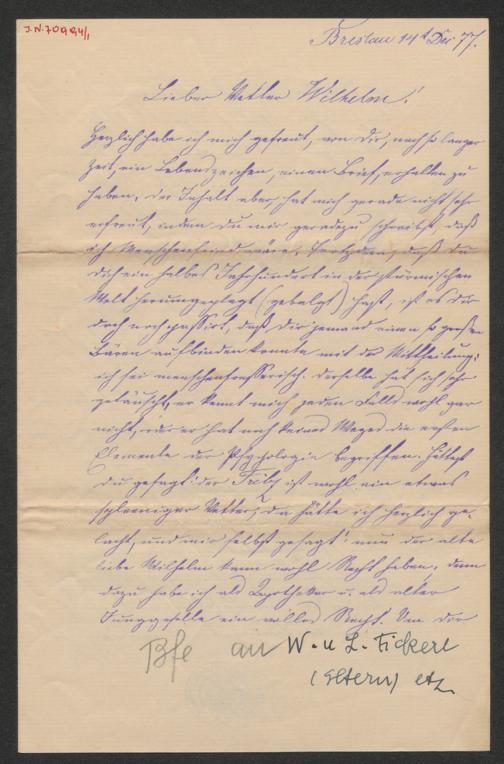 J.N. 70994/1
Breslau 14t Dec. 77.
Lieber Vetter Wilhelm!
Herzlich habe ich mich gefreut, von Dir, nach so langer
Zeit, ein Lebenszeichen, einen Brief, erhalten zu
haben, der Inhalt aber, hat mich gerade nicht sehr
erfreut, indem Du mir geradezu schreibst, daß
ich Menschenfeind wäre. Trotzdem, daß du
Dich ein halbes Jahrhundert in der stürmischen
Welt herumgeplagt (gebalgt) hast, ist es dir
doch noch passirt, daß dir jemand einen so großen
Bären aufbinden konnte mit der Mittheilung:
ich sei menschenfresserisch. Derselbe hat sich sehr
getäuscht, er kennt mich jeden Falls wohl gar
nicht, oder er hat noch keines Weges die ersten
Elemente der Psychologie begriffen. Hättest
du gesagt: der Fritz ist wohl ein etwas
spleeniger Vetter, da hätte ich herzlich ge-
lacht, und mir selbst gesagt: nun der alte
liebe Wilhelm kann wohl Recht haben, denn
dazu habe ich als Apotheker u. als alter
Junggeselle ein volles Recht. Von Dir
Bfe an W. u L. Fickert
(Eltern) etz